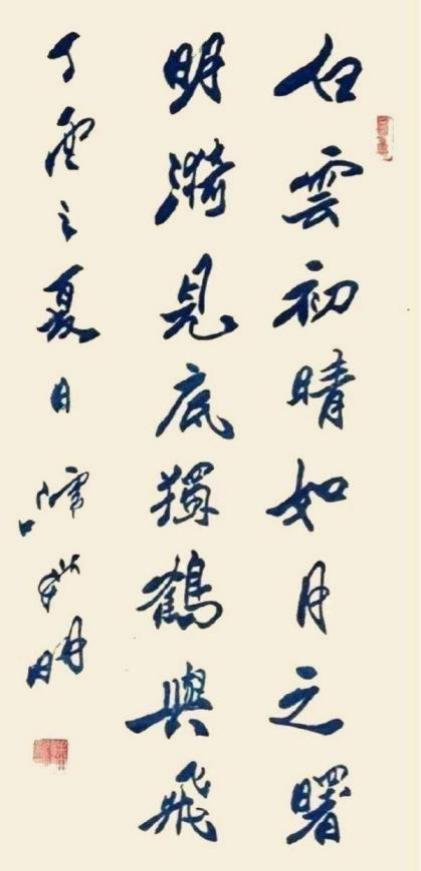 白雲初晴如月之曙
明漪見底獨鶴與飛
丁酉之夏日 明